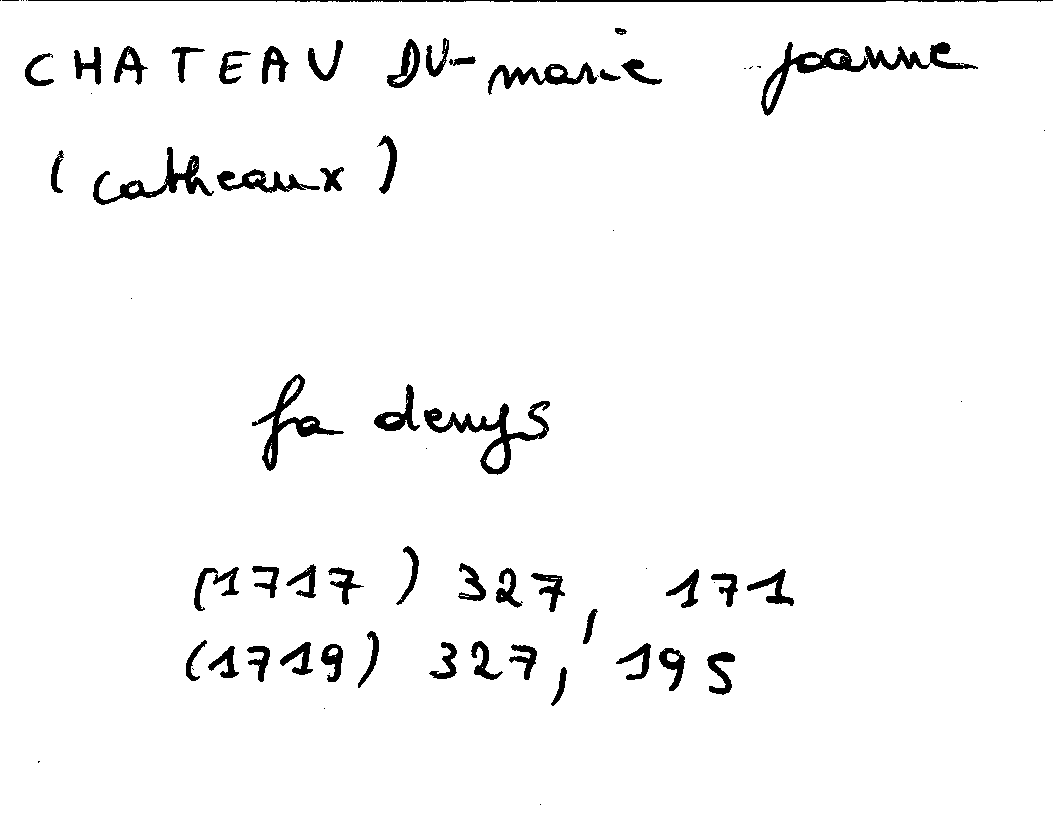 CHATEAU DU- marie joanne
(catheaux)
fa denys
(1717) 327, 171
(1719) 327, 195